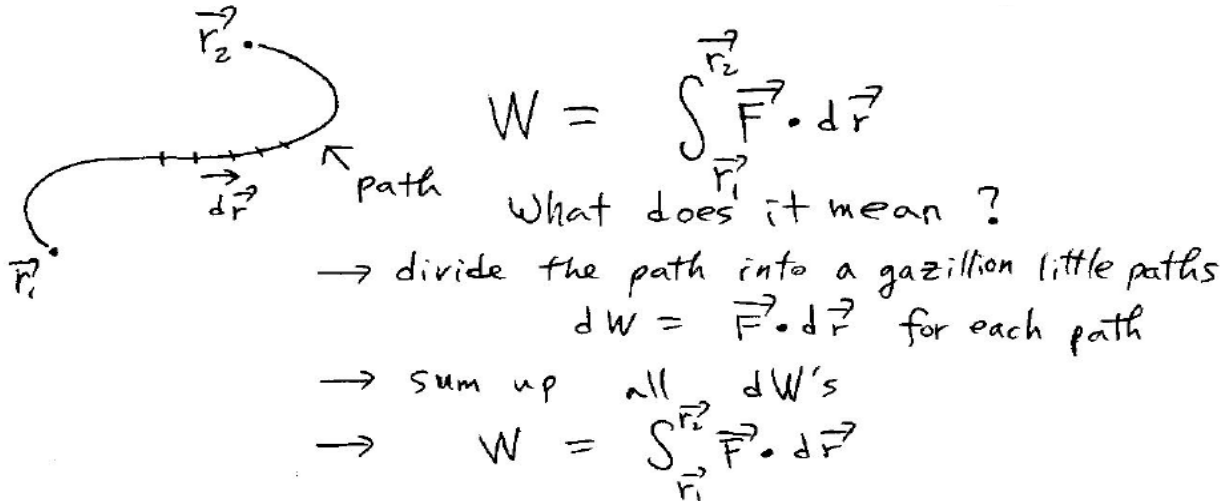 r⃗₂
W = ∫_{r⃗₁}^{r⃗₂} F⃗ · dr⃗
path
dr⃗
What does it mean ?
r⃗₁
→ divide the path into a gazillion little paths
dW = F⃗ · dr⃗ for each path
→ sum up all dW's
→ W = ∫_{r⃗₁}^{r⃗₂} F⃗ · dr⃗